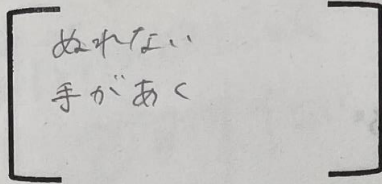 ぬれない
手があく